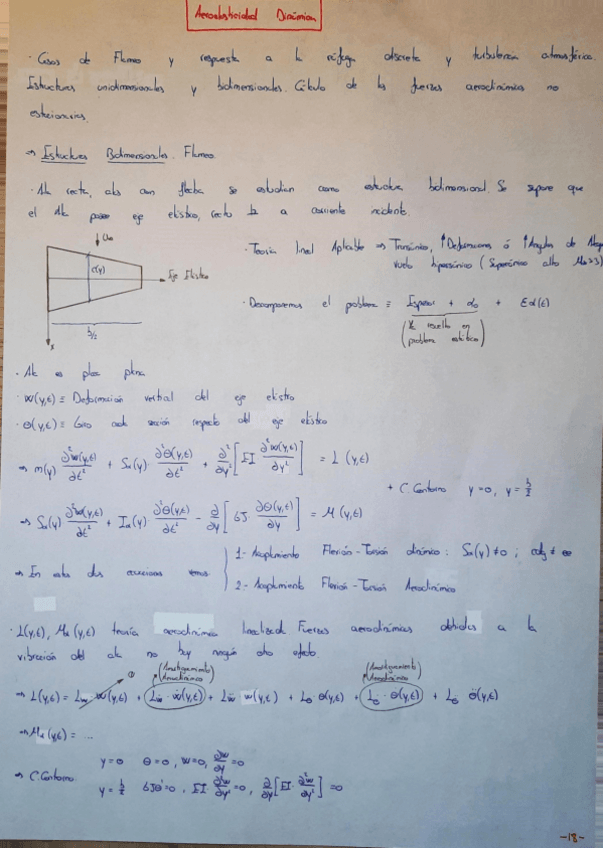 Aeroelasticidad Dinámica
· Casos de Flameo y respuesta a la ráfaga discreta y turbulencia atmosférica.
Estructuras unidimensionales y bidimensionales. Cálculo de las fuerzas aerodinámicas no
estacionarias.
⇒ Estructuras Bidimensionales. Flameo.
· Ala recta, alas con flecha se estudian como estructura bidimensional. Se supone que
el Ala posee eje elástico, recto la a corriente incidente.
U∞
c(y)
Eje Elástico
b/2
x
· Teoría lineal Aplicable ⇒ Transónico, ↑Deformaciones ó ↑Angulos de Ataque
vuelo hipersónico (Supersónico alto M∞>3)
· Descomponemos el problema ≡ Espesor + α₀ + εα(t)
(Ya resuelto en
problema estático)
· Ala es placa plana
· w(y,t) ≡ Deformación vertical del eje elástico
· θ(y,t) ≡ Giro cada sección respecto del eje elástico
⇒ m(y) ∂²w(y,t)/∂t² + Sα(y)· ∂²θ(y,t)/∂t² + ∂²/∂y² [EI ∂²w(y,t)/∂y²] = L (y,t)
+ C Contorno y=0, y=b/2
⇒ Sα(y) ∂²w(y,t)/∂t² + Iα(y)· ∂²θ(y,t)/∂t² − ∂/∂y [GJ ∂θ(y,t)/∂y] = M (y,t)
1.- Acoplamiento Flexión-Torsión dinámico: Sα(y)≠0 ; cdg ≠ ee
⇒ En estas dos ecuaciones vemos
2.- Acoplamiento Flexión-Torsión Aerodinámico
· L(y,t), Mα(y,t) teoría aerodinámica linealizada. Fuerzas aerodinámicas debidas a la
vibración del ala no hay ningún otro efecto
(Amortiguamiento Aerodinámico) (Amortiguamiento Aerodinámico)
⇒ L(y,t) = Lw·w(y,t) + Lẇ·ẇ(y,t) + Lẅ·ẅ(y,t) + Lθ·θ(y,t) + Lθ̇·θ̇(y,t) + Lθ̈·θ̈(y,t)
⇒ Mα(y,t) = ...
y=0 θ=0, w=0, ∂w/∂y=0
⇒ C.Contorno
y=b/2 GJθ'=0, EI ∂²w/∂y²=0, ∂/∂y[EI ∂²w/∂y²]=0
-18-